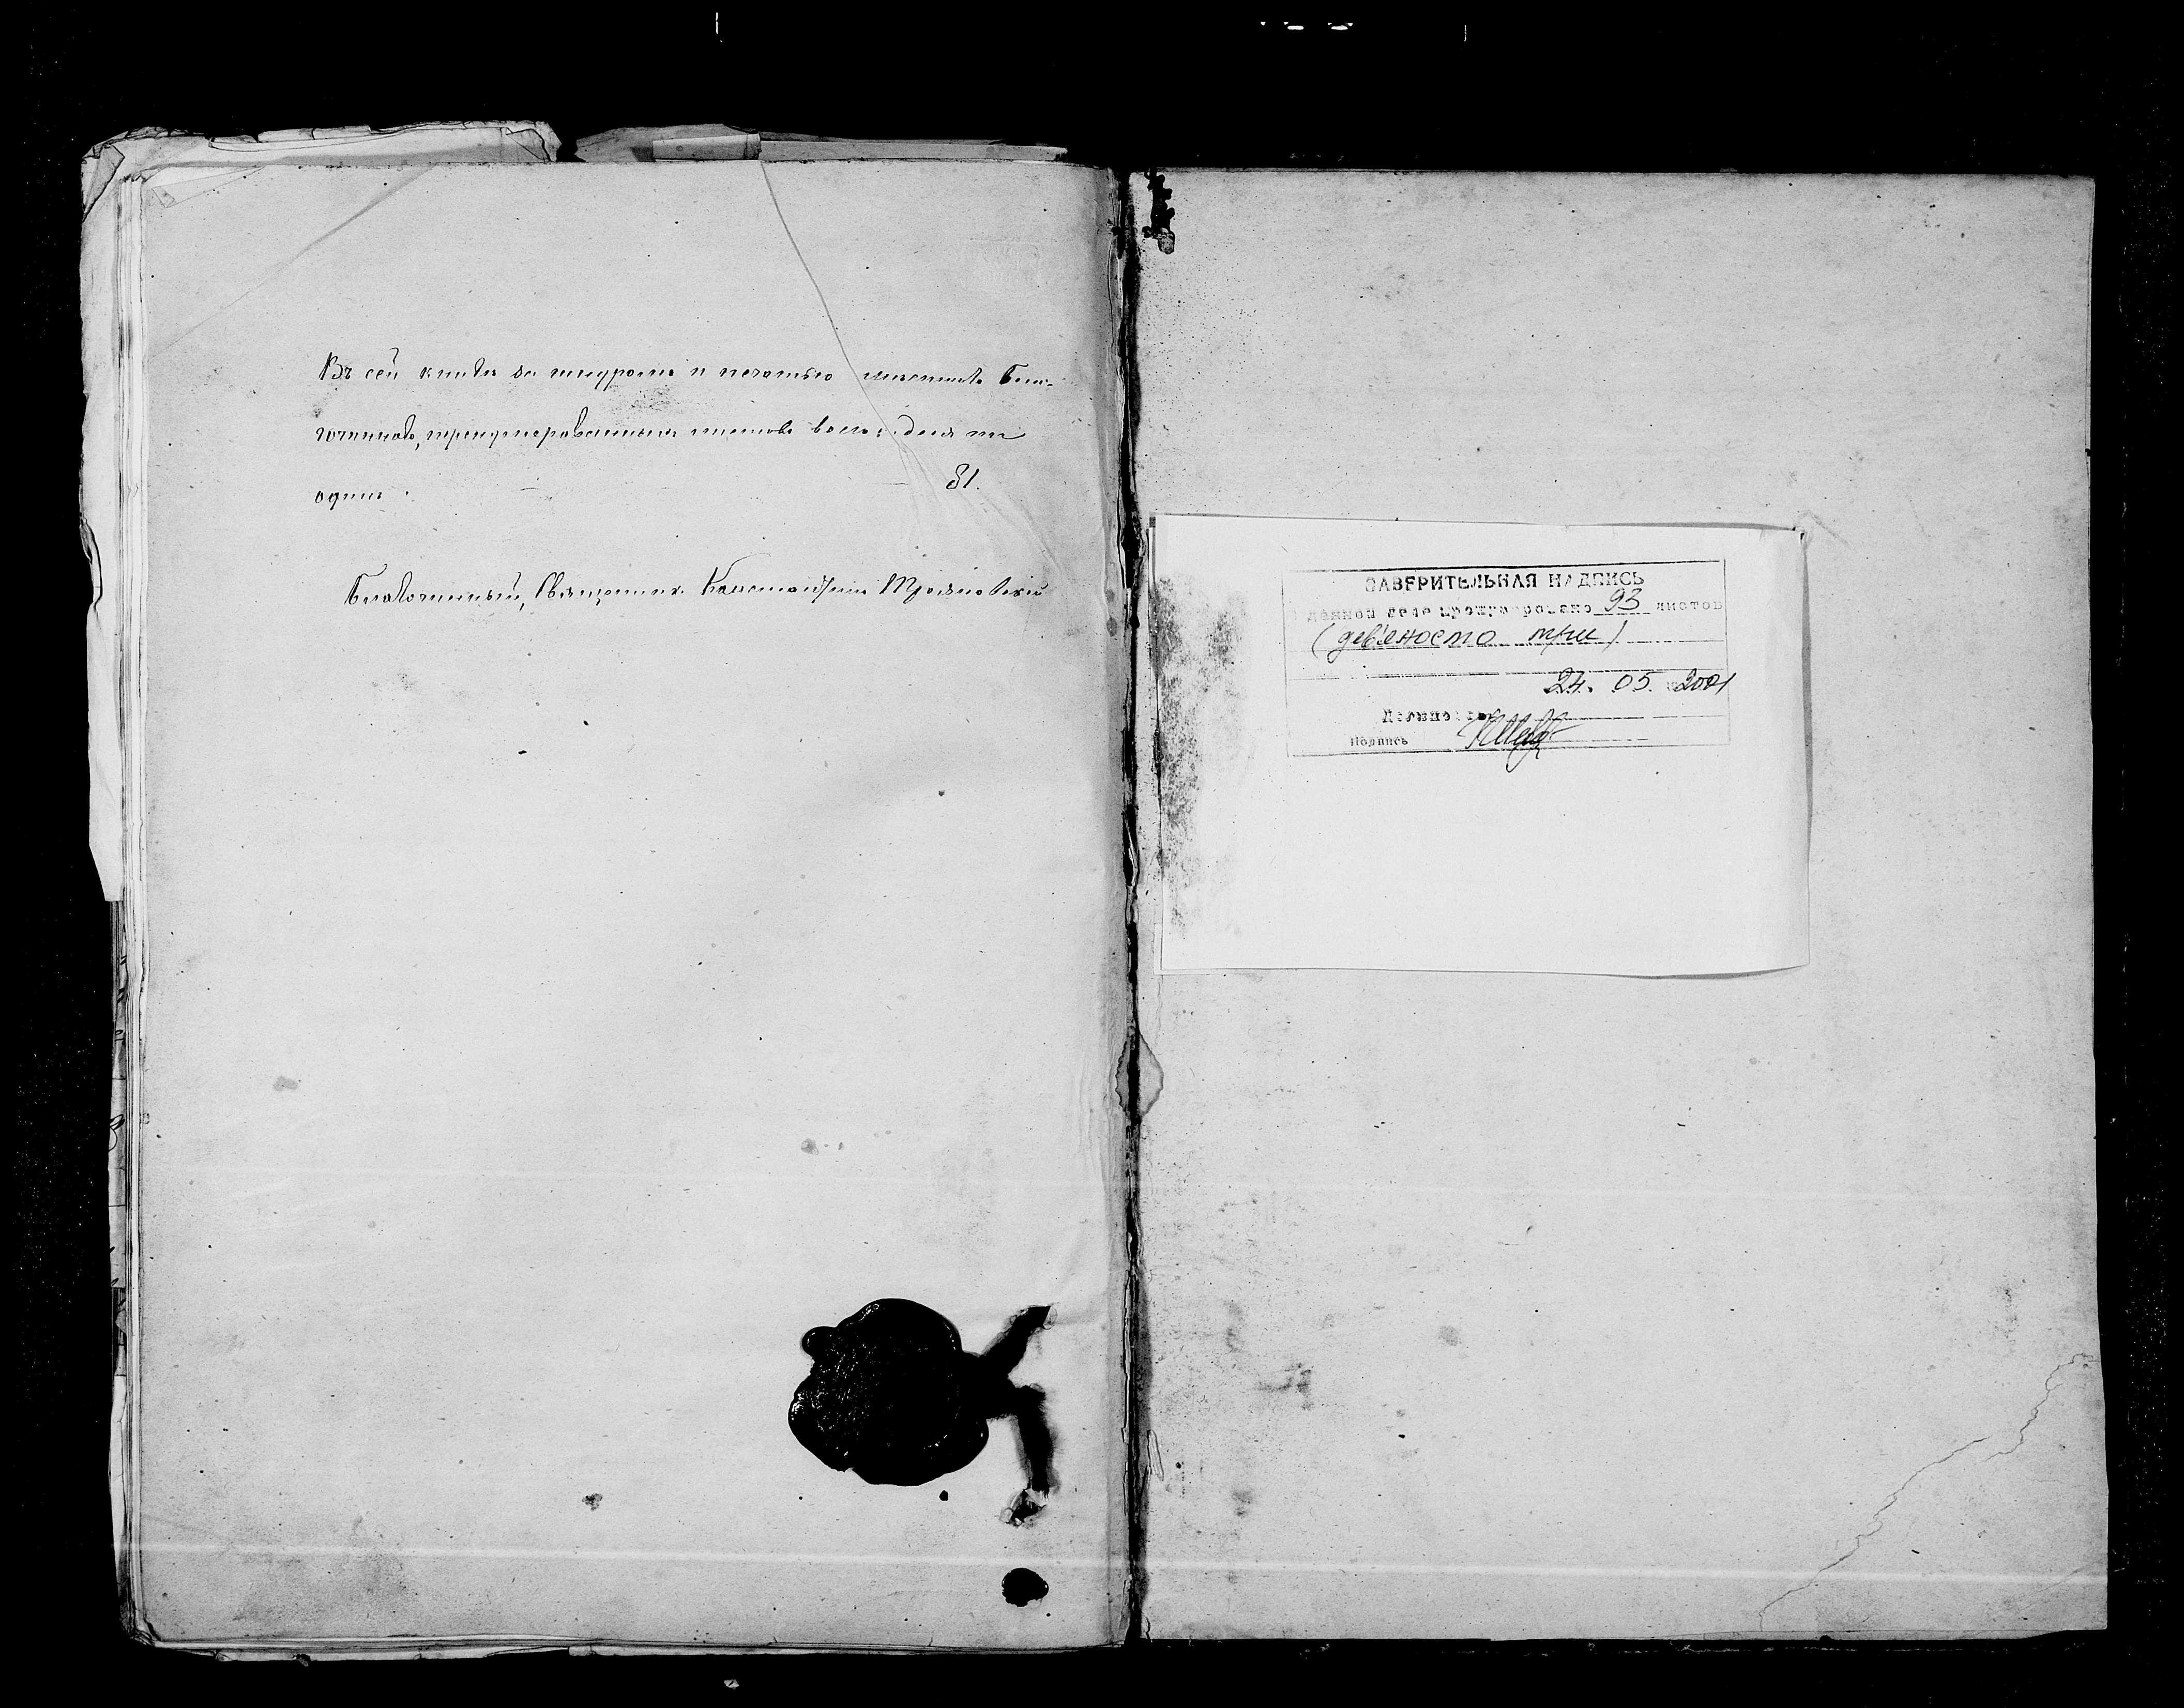 Въ сей книгѣ за шнуромъ и печатью мѣстнаго Бла-
гочиннаго, пронумерованныхъ листовъ восемьдесятъ
одинъ. 81.
Благочинный, Священник Константинъ Трояновскій
ЗАВЕРИТЕЛЬНАЯ НАДПИСЬ
В данном деле пронумеровано 93 листов
(дев'яносто три)
24. 05. 2001
Должность
Подпись